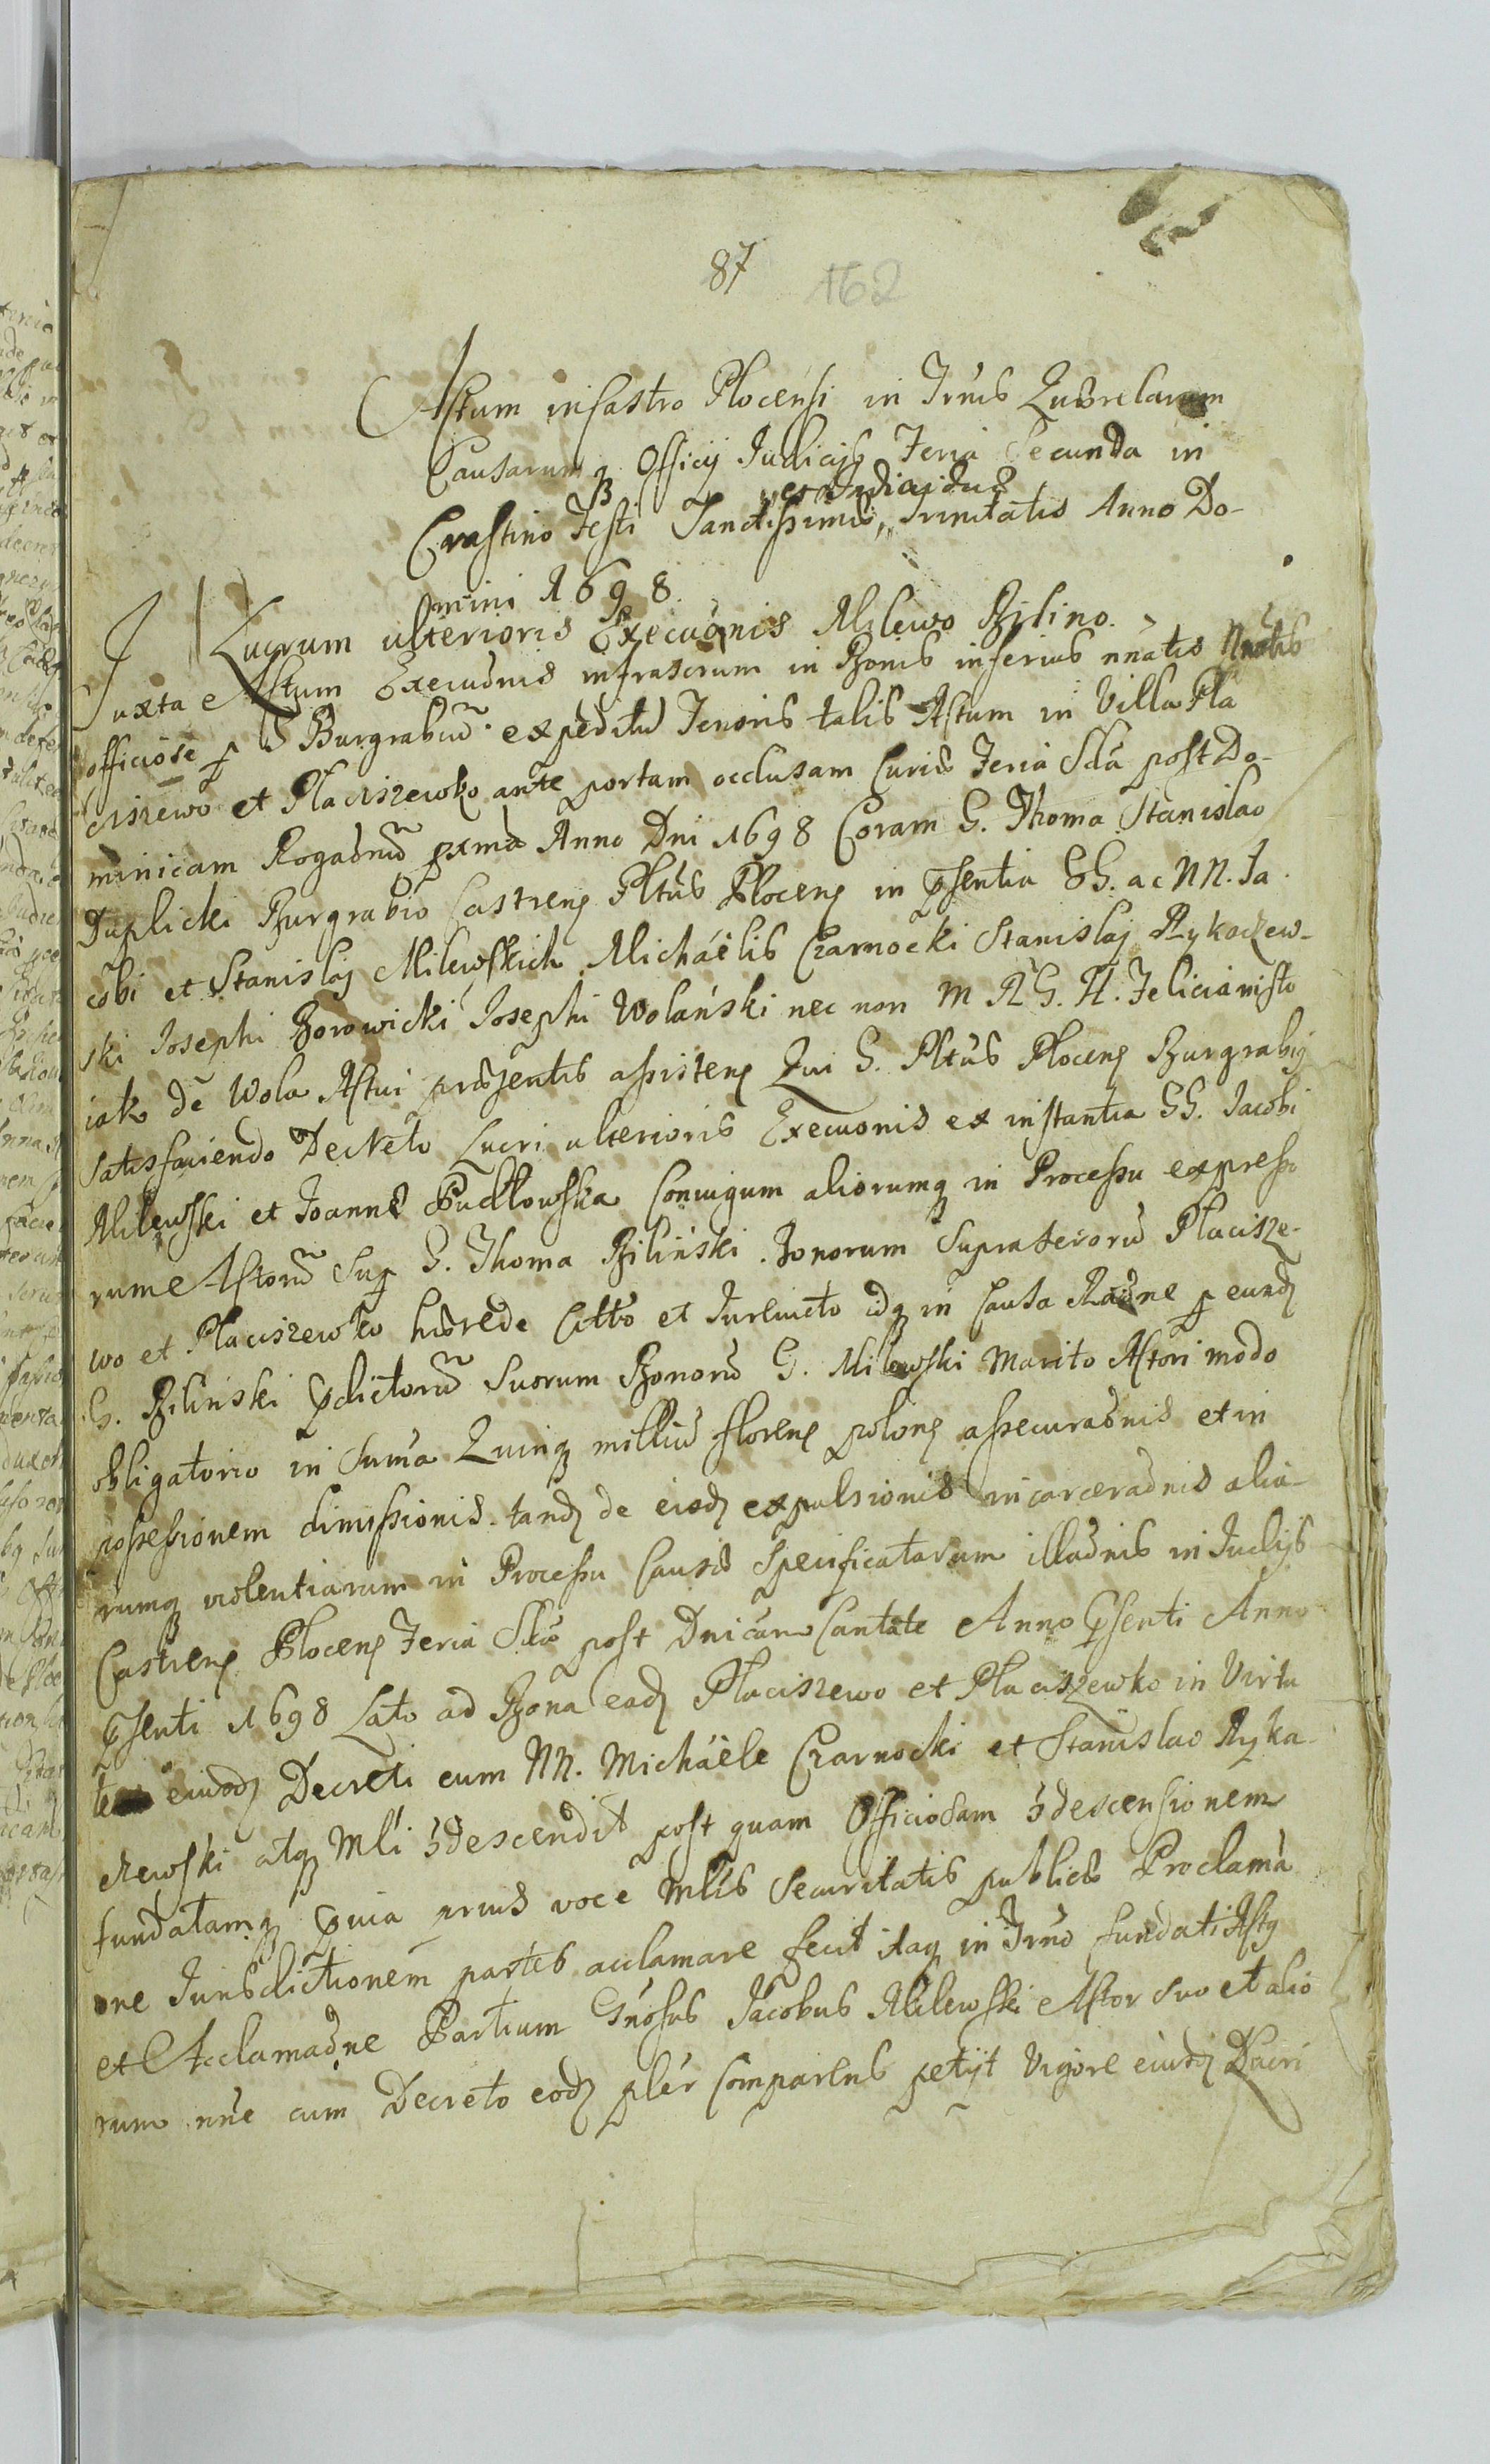 87 162
Actum in Castro Plocensi in Trnis Quærelarum
Causarumq Officij Iudicijs Feria Secunda in
et Individuæ
Crastino Festi Sanctissimæ, Trinitatis Anno Do-
mini 1698.
Lucrum ulterioris Execuonis Milewo Bilino.
Juxta Actum Execuonis infrascrum in Bonis inferius nnatis
officiose p Burgrabiu expeditu Tenoris talis Actum in Villa Pla
ciszewo et Placiszewko ante portam occlusam Curiæ Feria Scda post Do-
minicam Rogaonu pxma Anno Dni 1698 Coram G. Thoma Stanislao
Duplicki Burgrabio Castren Pltus Plocen in Psentia GG. ac NN. Ja
cobi et Stanislaj Milewskich Michäelis Czarnocki Stanislaj Rykaczew-
ski Josephi Borowicki Josephi Wolański nec non M R G. H. Felicia misto
iak de Wola Actui præsentis assisten Qui G. Pltus Plocen Burgrabij
satisfaciendo Decreto Lucri ulterioris Execuonis ex instantia GG. Jacobi
Milewski et Joannæ Pudłowska Coniugum aliorumq in Processu expresso
rum Actoru Sup G. Thoma Biliński Bonorum suprascroru Placisze-
wo et Placiszewko hærede Citto et Iurevicto idq in Causa Raone p eund
G. Biliński Pdictoru Suorum Bonoru G. Milewski Marito Actori modo
obligatorio in Suma Quinq milliu floren polon assecuraonis et in
possessionem dimissionis tand de eisd expulsionis incarceraonis alia-
rumq violentiarum in Processu Causæ Specificatarum illaonis in Iudijs
Castren Plocen Feria Scda post Dnicam Cantate Anno Psenti Anno
Psenti 1698 Lato ad Bona ead Placiszewo et Placiszewko in Virtu
te eiusd Decreti cum NN. Michäele Czarnocki et Stanislao Ryka-
czewski atq Mli condescendit post quam Officiosam condescensionem
fundatamq Pvia prius voce Mlis Securitatis publicæ Proclama
one Iurisdictionem partes acclamare fecit itaq in Trno fundati Actq
et Acclamaone Partium Gnosus Jacobus Milewski Actor suo et alio
rum nne cum Decreto eod pler Comparens petijt Vigore eiusd Lucri